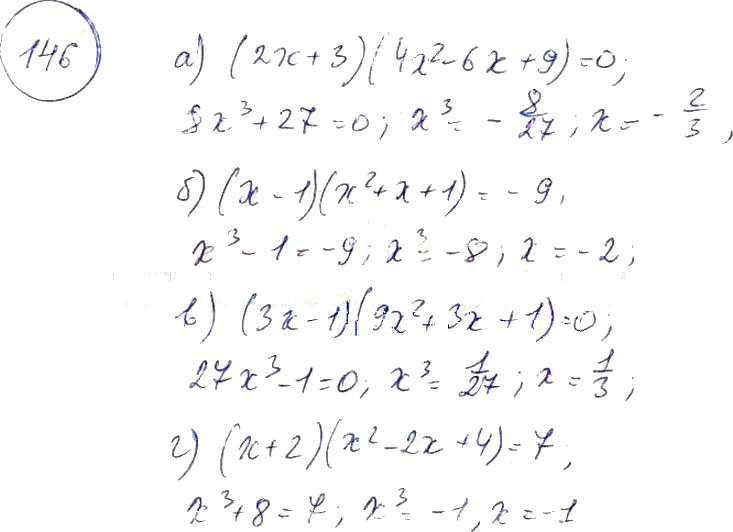 146
а) (2x+3)(4x²-6x+9)=0;
8x³+27=0; x³=-8/27; x=-2/3,
б) (x-1)(x²+x+1)=-9,
x³-1=-9; x³=-8; x=-2;
в) (3x-1)(9x²+3x+1)=0;
27x³-1=0; x³=1/27; x=1/3;
г) (x+2)(x²-2x+4)=7;
x³+8=7; x³=-1, x=-1